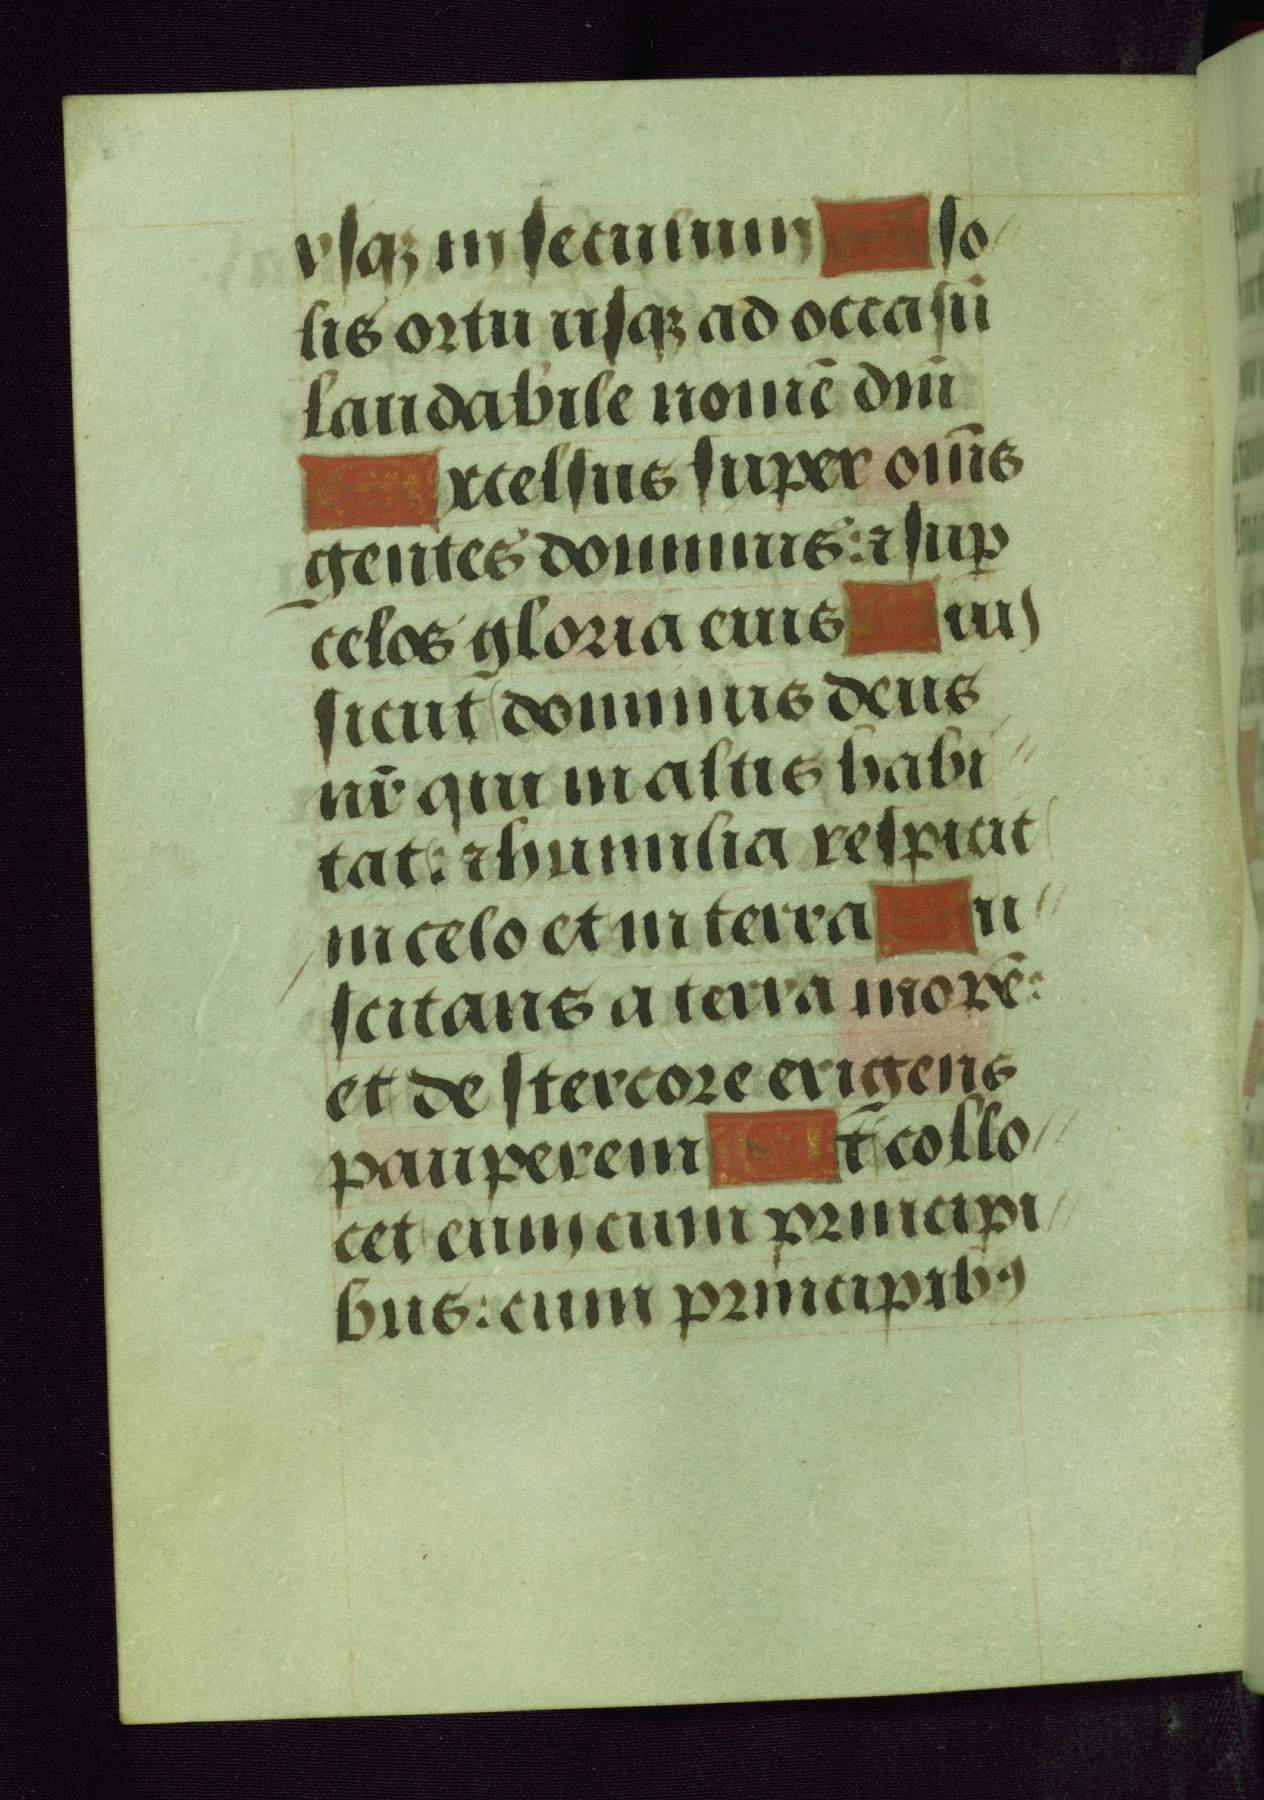 vsqȝ in seculum A so
lis ortu usqȝ ad occasū
laudabile nomē dm̄
Excelsus super om̄s
gentes dominus: ⁊ sup
celos gloria eius Q uis
sicut dominus deus
nr̄ qui in altis habi
tat: ⁊ humilia respicit
in celo et in terra S u
scitans a terra inopē:
et de stercore erigens
pauperem U t̄ collo
cet eum cum principi
bus: cum principibꝰ